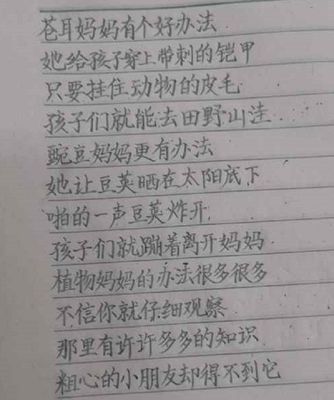 苍耳妈妈有个好办法
她给孩子穿上带刺的铠甲
只要挂住动物的皮毛
孩子们就能去田野山洼
豌豆妈妈更有办法
她让豆荚晒在太阳底下
啪的一声豆荚炸开
孩子们就蹦着离开妈妈
植物妈妈的办法很多很多
不信你就仔细观察
那里有许许多多的知识
粗心的小朋友却得不到它